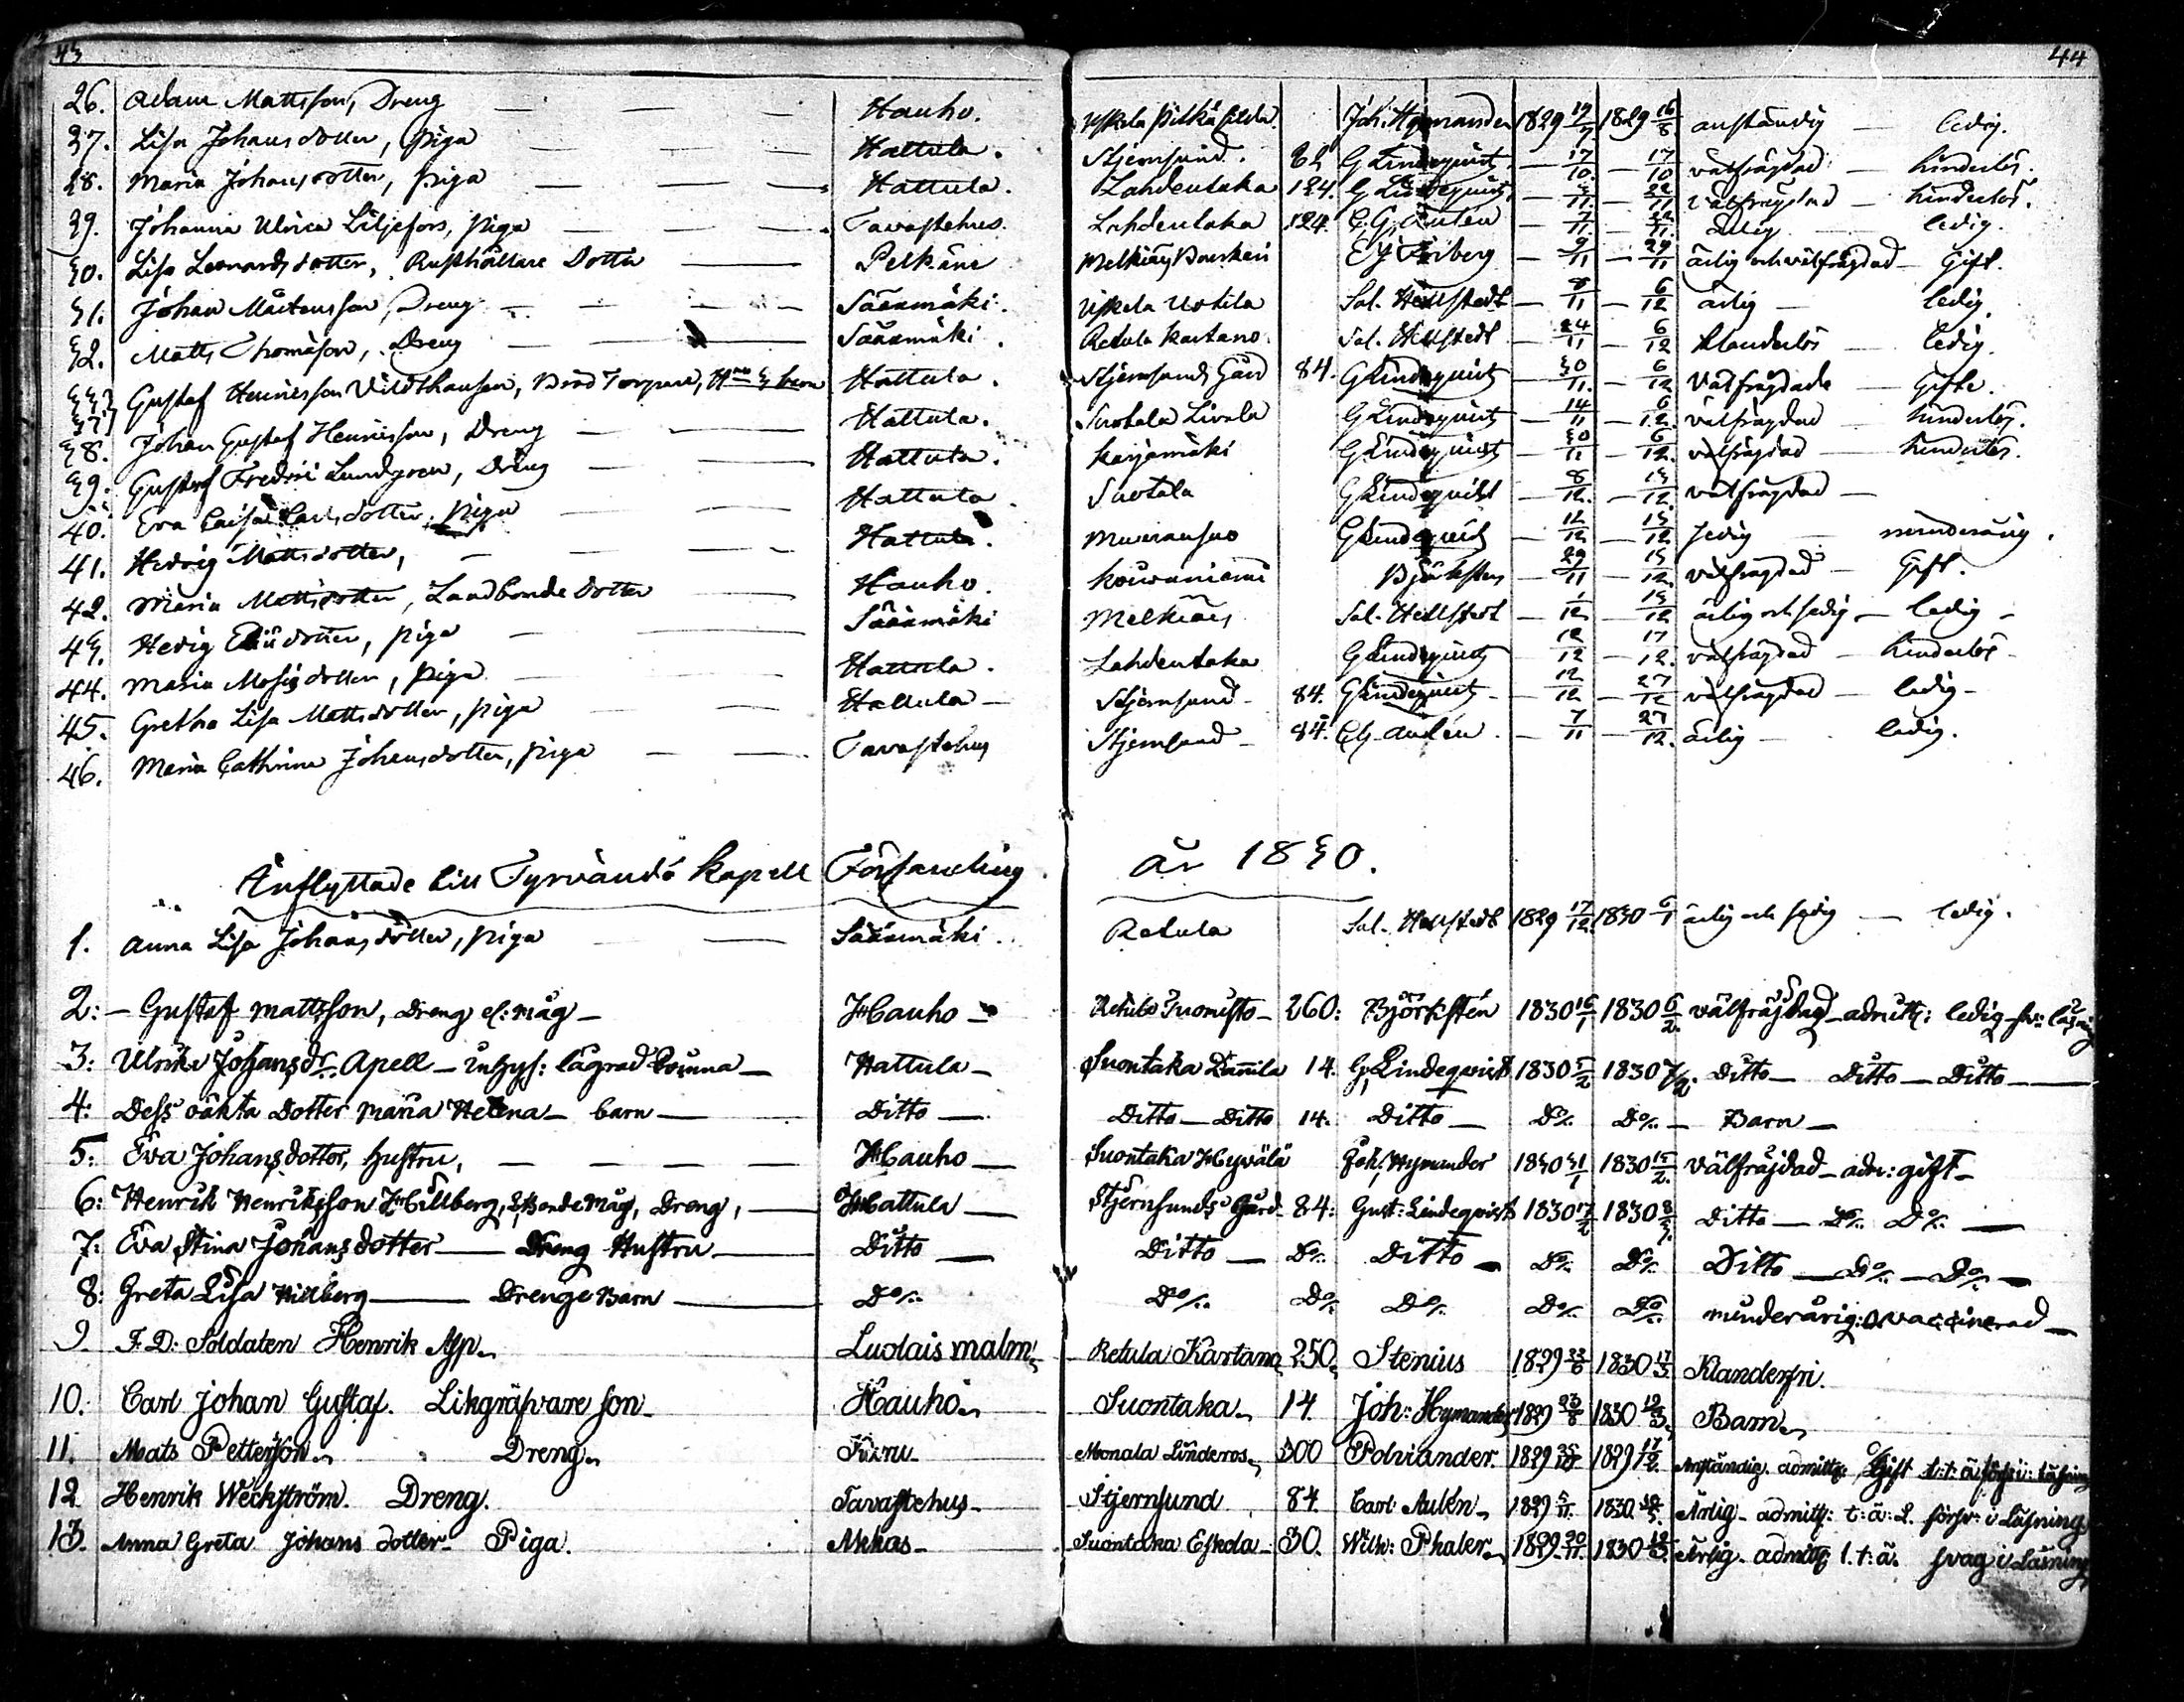 43 44
26. Adam Mattsson, Dreng — — — Hauho. Uskela Pitkäsilda. Joh. Hymander 1829 19/7 1829 16/8 anständig — ledig.
27. Lisa Johansdotter, Piga — — Hattula. Stjernsund. G Lindeqvist — 17/10 — 17/10 välfrägdad — hinderlös.
28. Maria Johansdotter, Piga — — Hattula. Lahdentaka 124. G Lindeqvist — /11 — 22/11 välfrägdad — hinderlös.
29. Johanna Ulrica Liljefors, piga — — Tavastehus. Lahdentaka 124. C. G. Aulén — 7/11 — 22/11 ärlig — ledig.
30. Lisa Leonardsdotter, Rusthållare Dotter — Pelkäne Melkiäis — 9/11 — 29/11 ärlig och välfrägdad — Gift.
31. Johan Mårtensson, Dreng — — Sääxmäki. Uskela Uotila Sal. Hellstedt — 8/11 — 6/12 ärlig — ledig
32. Matts Thomasson, Dreng — — Sääxmäki. Retula Kartano Sal. Hellstedt — 24/11 — 6/12 klanderlös — ledig.
33 37 Gustaf Henricsson Vildthausen, Torpare, H 3 barn Hattula. Stjernsunds Gård 84. G Lindeqvist — 30/11 — 6/12 Välfrägdade — Gifte.
38. Johan Gustaf Henricsson, Dreng — — Hattula. Suotala Livola G Lindeqvist — 14/11 — 6/12. välfrägdad — hinderlös.
39. Gustaf Fredric Lundgren, Dräng — — Hattula. Karjamäki G Lindeqvist — 30/11 — 6/12. välfrägdad — hinderlös.
40. Eva Caisa Carlsdotter, piga — — Hattula. Suotala G Lindeqvist — 8/12. — 13/12 välfrägdad —
41. Hedvig Mattsdotter, — — Hattula. G Lindeqvist — 12/12 — 13/12 sedig — minderårig.
42. Maria Mattsdotter, Landbonde Dotter — Hauho. Kouvaniemi Björkstén — 29/11 — 13/12. välfrägdad — Gift.
43. Hedvig dotter, piga — — Sääxmäki Melkiäis Sal. Hellstedt — 1/12 — 13/12 ärlig och sedig — ledig —
44. Maria Mosisdotter, piga — Hattula. Lahdentaka G Lindeqvist — 12/12 — 17/12. välfrägdad — hinderlös —
45. Gretha Lisa Mattsdotter, piga — — Hattula — Stjernsund — 84. G Lindeqvist — 12/12 — 27/12 välfrägdad — ledig —
46. Maria Cathrina Johansdotter, piga — — Tavastehus Stjernsund — 84. C G. Aulén. — 7/11 — 27/12. ärlig — ledig.
Inflyttade till Tyrvändö Kapell Församling. År 1830.
1. Anna Lisa Johansdotter, piga — — Sääxmäki. Retula Sal. Hellstedt 1829 17/12 1830 6/1 ärlig och sedig — ledig.
2: — Gustaf Mattsson, Dreng el: måg — Hauho — Retula Suomisto — 260: Björkstén 1830 16/1 1830 6/2. välfräjdad — admitt: ledig — läsning
3: Ulrika Johansdr. Apell — inhys: lägrad qvinna — Hattula — Suontaka 14. G. Lindeqvist 1830 5/2 1830 7/2. Ditto — Ditto — Ditto —
4: Dess oäkta Dotter Maria Helena — barn — Ditto — Ditto — Ditto 14. Ditto — Do/. Do/. — Barn —
5: Eva Johansdotter, hustru, — — — Hauho — Suontaka Hyvälä Joh: Hymander 1830 31/1 1830 15/2. välfräjdad — adm: gift —
6: Henrik Henriksson Hillberg, Bonde Måg, Dreng, — Hattula — Stjernsunds Gård — 84: Gust: Lindeqvist 1830 17/2 1830 8/3. Ditto — Do/. Do/. —
7: Eva Stina Johansdotter — Dreng Hustru — Ditto — Ditto — Do/. Ditto — Do/. Do/. Ditto — Do/. — Do/. —
8: Greta Lisa Hillberg — Drenge Barn — Do/. Do/. Do/. Do/. Do/. Do/. minderårig: ovaccinerad —
9. F. D: Soldaten Henrik Asp. Ludais malm. Retula Kartano 250. Stenius 1829 /6 1830 17/3 Klanderfri.
10. Carl Johan Gustaf. Likgräfvare son — Hauho. Suontaka. 14. Joh: Hymander 1829 23/8 1830 12/3. Barn.
11. Mats Pettersson. Dreng. Monala Linderos. 300 Polviander. 1829 1829 17/2. Anständig. admitt: Gift läsning
12. Henrik Weckström. Dreng. Tavastehus — Stjernsund 84. Carl Aulén. 1829 5/11. 1830. Ärlig — admitt: t: ä: L. försv: i Läsning
13. Anna Greta Johans dotter — Piga. Akkas — Suontaka Eskola — 30. Wilh: Phaler. 1829 20/11. 1830 Ärlig. admitt: l. t: ä. svag i Läsning